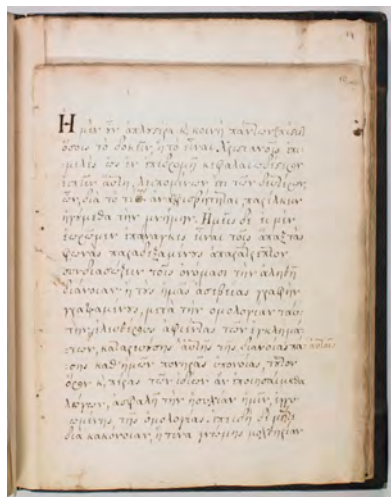 Ἡ μὲν οὖν ἁπλουστέρα κ̀ κοινὴ πάντων
ὅσοις τὸ δοκεῖν ἢ τὸ εἶναι χριστιανοῖς ἐπι-
μελὲς ὡς ἐν ἐπιδρομῇ κεφαλαιωδέστερον
εἰπεῖν αὕτη, λειπομένων ἔτι τῶν δευτέρων,
ὧν, διὰ τὸ παρέλκειν
ἡγούμεθα τὴν μνήμην. Ἡμεῖς δὲ εἰ μὲν
ἑωρῶμεν ἐπάναγκες εἶναι τοῖς ἅπαξ τὰς
φωνὰς παραδεξαμένοις ἀπαράτρεπτον
συνδιασώζειν τοῖς ὀνόμασι τὴν ἀληθῆ
διάνοιαν· ἢ τῆς ἡμᾶς ἀσεβείας γραφὴν
γραψαμένους, μετὰ τὴν ὁμολογίαν ταύ-
την, ἐλευθέρους ἀφέντας τῶν ἐγκλημά-
των, αὐτῆς τῆς διανοίας πά-
σης καθ' ἡμῶν πονηρᾶς ὑπονοίας, τοῦτον
ὅρον κ̀ πέρας τῶν ἰδίων ἂν ἐποιησάμεθα
λόγων, ἀσφαλῆ τὴν ἡσυχίαν ἡμῖν, ἐγγυ-
ωμένης τῆς ὁμολογίας. ἐπειδὴ δὲ
διὰ κακόνοιαν, ἤ τινα γνώμης μοχθηρίαν